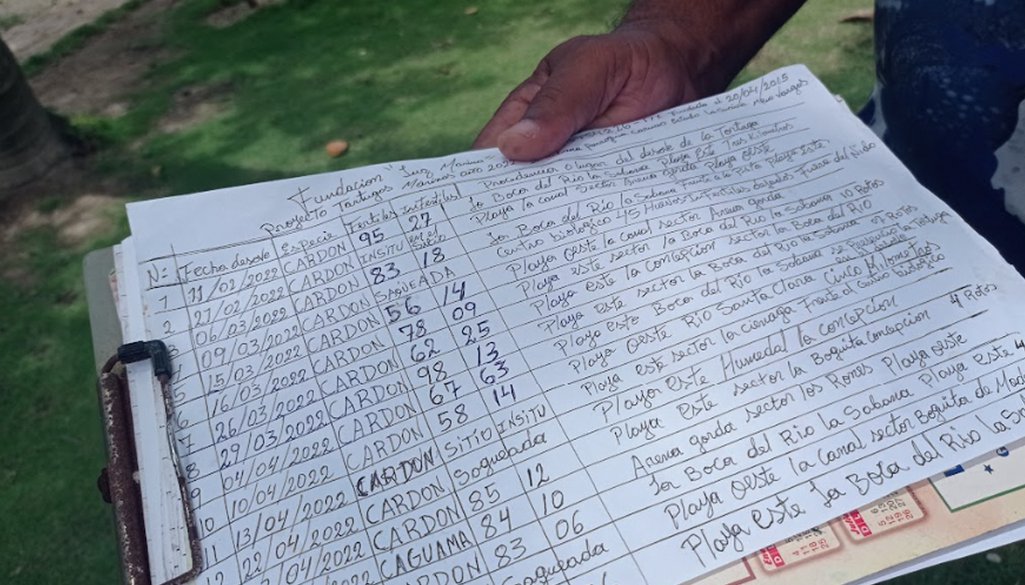 Fundacion Luz Marina Fundada el 20/04/2015
Proyecto Tortugas Marinas año parroquia Caruao estado La Guaira Vargas
N: Fecha desove Especie Fertiles Infertiles Procedencia o lugar del desove de la Tortuga
1 11/02/2022 CARDON 95 27 La Boca del Rio la Sabana Playa Este Tres Kilometros
2 21/02/2022 CARDON INSITU EN EL Playa la canal sector Arena gorda Playa oeste
06/03/2022 CARDON 83 18 La Boca del Rio la Sabana Frente a la Pista Playa este
09/03/2022 CARDON SAQUEADA Centro biologico 45 Huevos Infertiles dejados Fuera del Nido
5 15/03/2022 CARDON 56 14 Playa oeste la canal sector Arena gorda
6 16/03/2022 CARDON 78 09 Playa este sector la Boca del Rio la Sabana 10 Rotos
7 26/03/2022 CARDON 62 25 Playa este la concepcion sector la Boca del Rio
8 29/03/2022 CARDON 98 13 Playa este sector la Boca del Rio la Sabana 07 Rotos
9 04/04/2022 CARDON 67 63 Playa este Boca del Rio la Sabana se la Tortuga
10 10/04/2022 CARDON 58 14 Playa oeste Rio Santa Clara Cinco Kilometros
11 13/04/2022 CARDON SITIO INSITU Playa este sector la cienaga Frente al centro biologico
12 22/04/2022 CARDON Saqueada Playa este Humedal la concepcion
/04/2022 CARDON 85 12 Playa este sector la Boquita Concepcion 4 Rotos
CAGUAMA 84 10 Arena gorda sector los Rones Playa oeste
DON 83 06 La Boca del Rio la Sabana Playa este 4
Saqueada Playa oeste la canal sector Boquita de
Playa este La Boca del Rio la